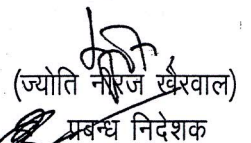 (ज्योति नीरज खैरवाल)
प्रबन्ध निदेशक